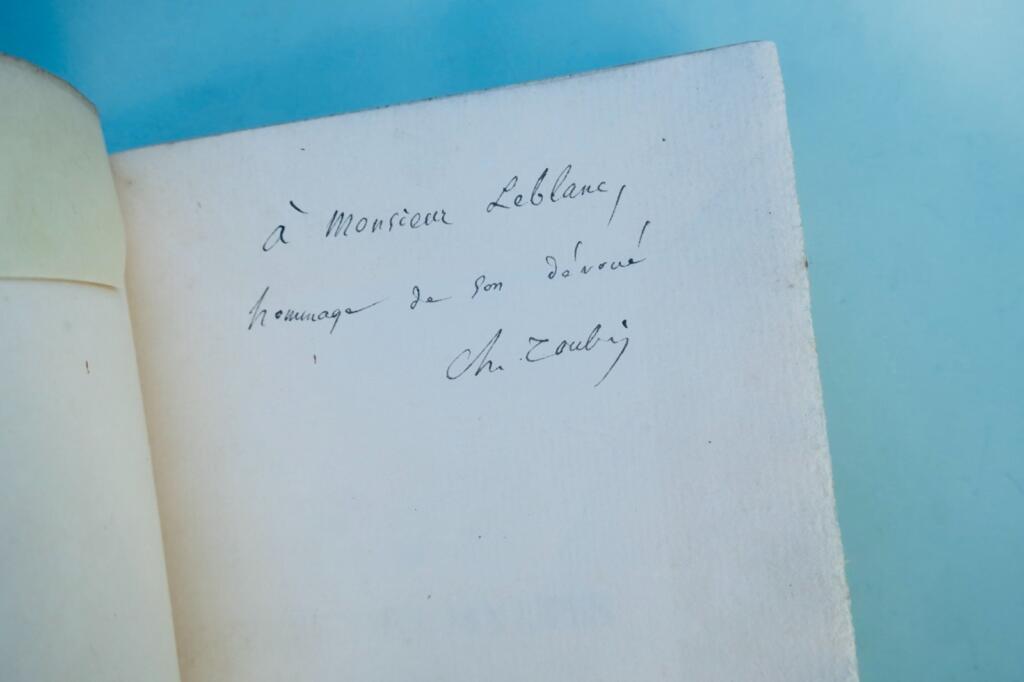 à Monsieur Leblanc,
hommage de son dévoué
Ch. Toubin